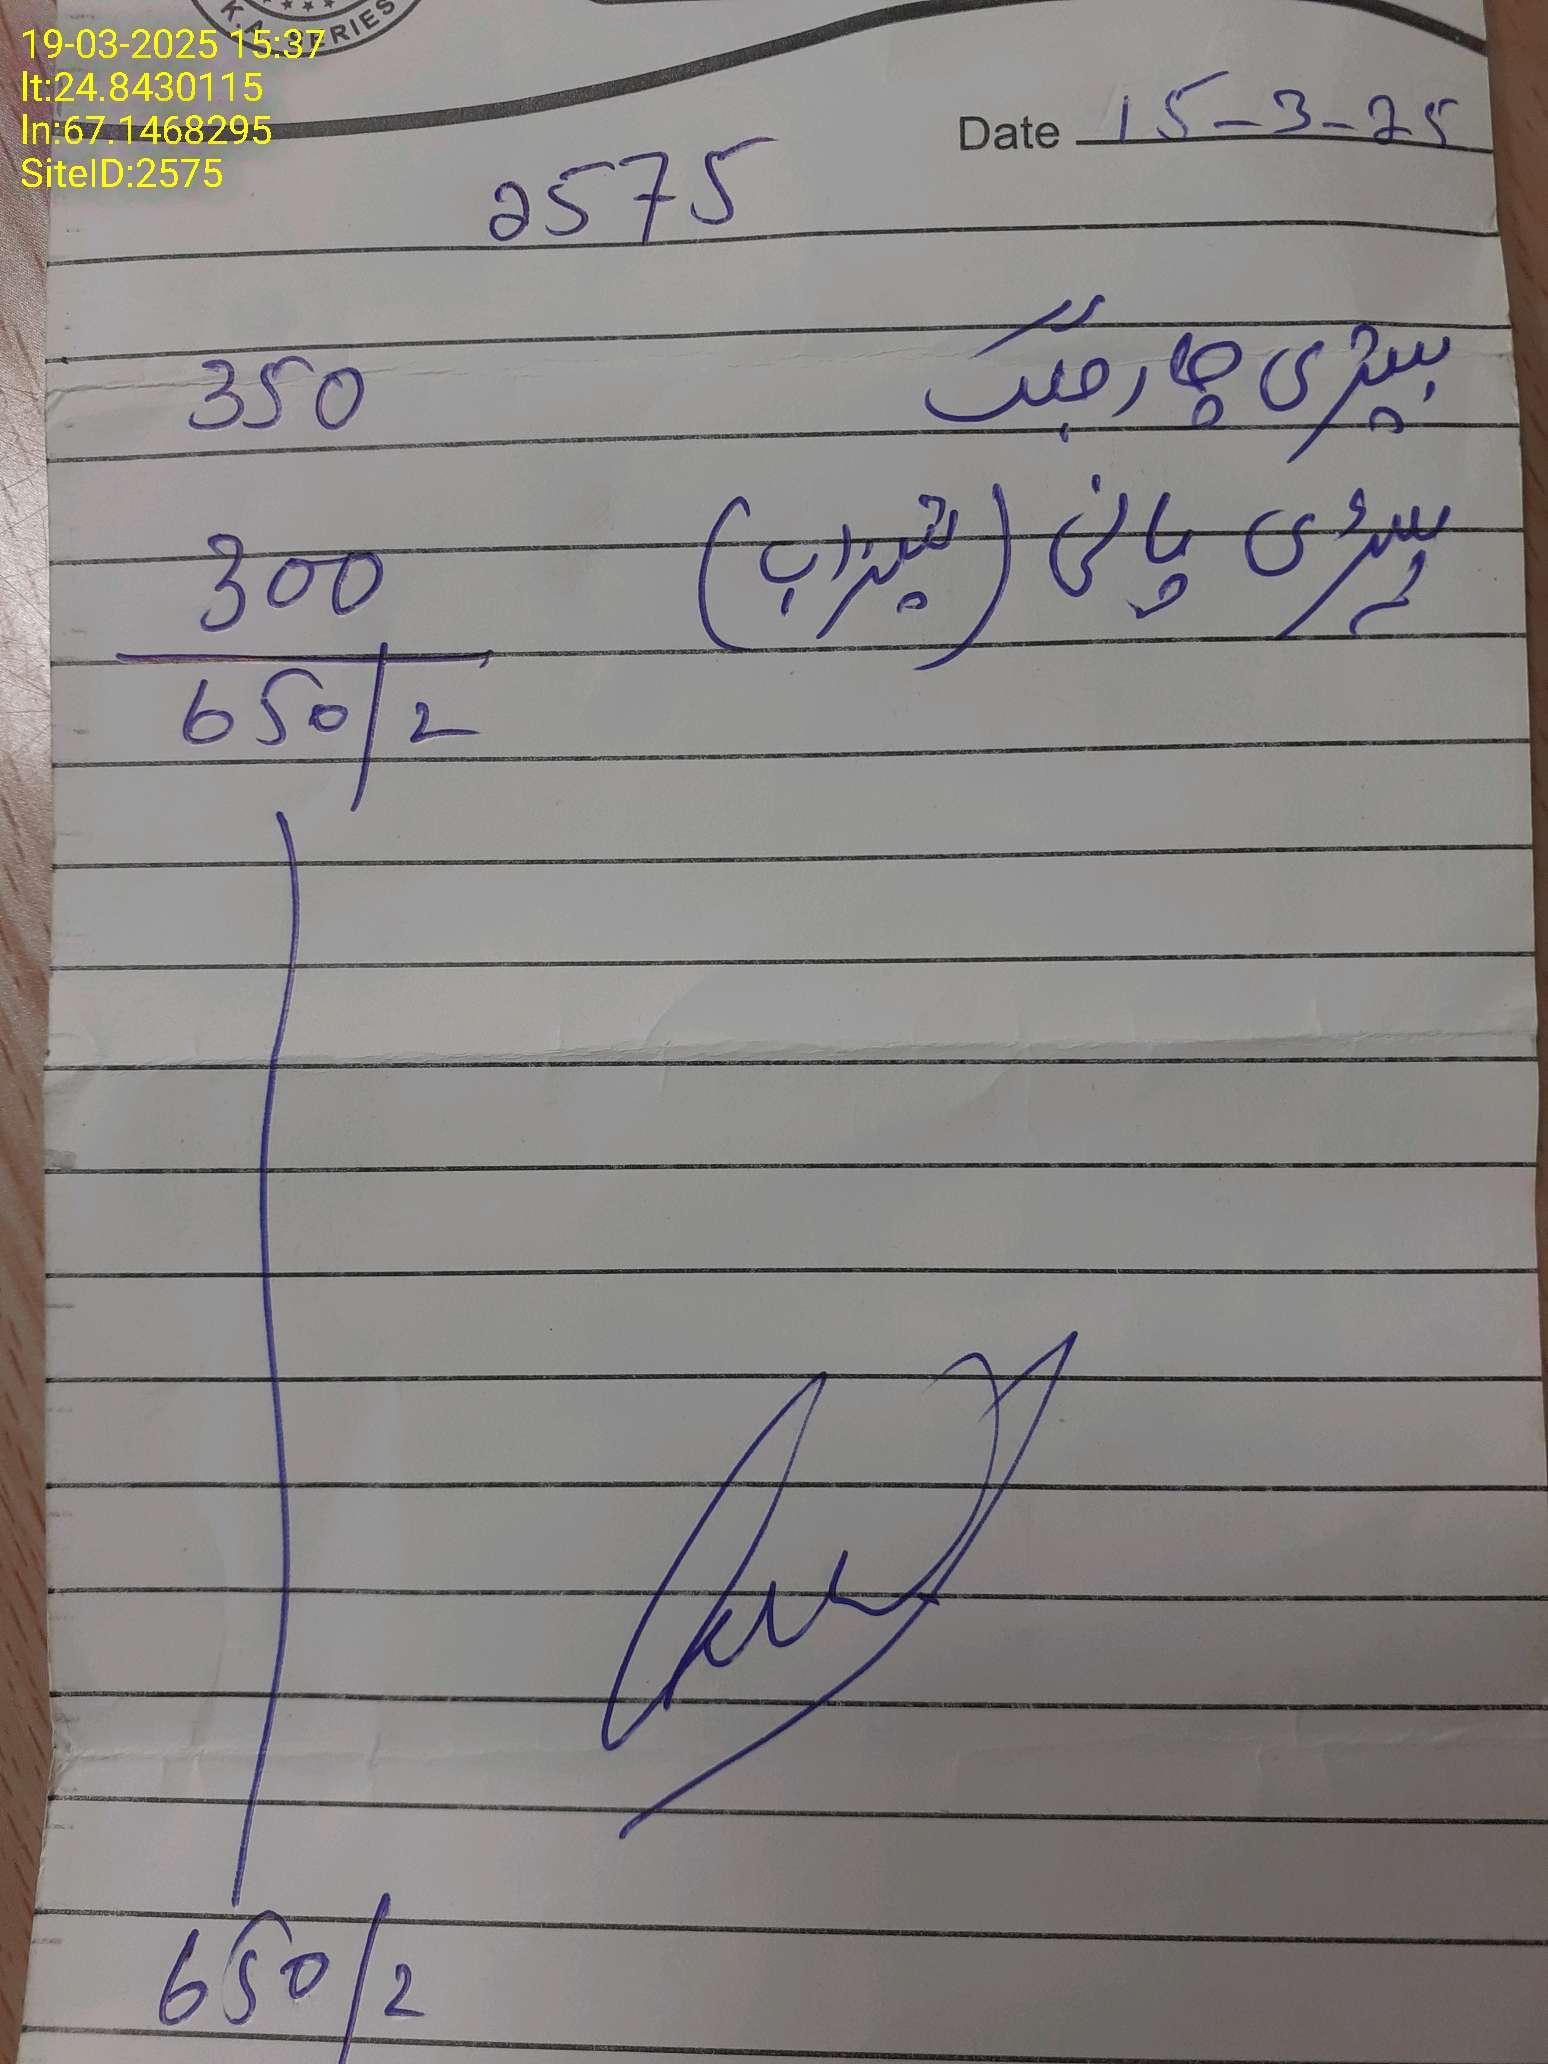 19-03-2025 15:37
lt:24.8430115
ln:67.1468295
SiteID:2575
Date 15-3-25
2575
بیٹری چارجنگ 350
بیٹری پانی (تیزاب) 300
650/2
650/2